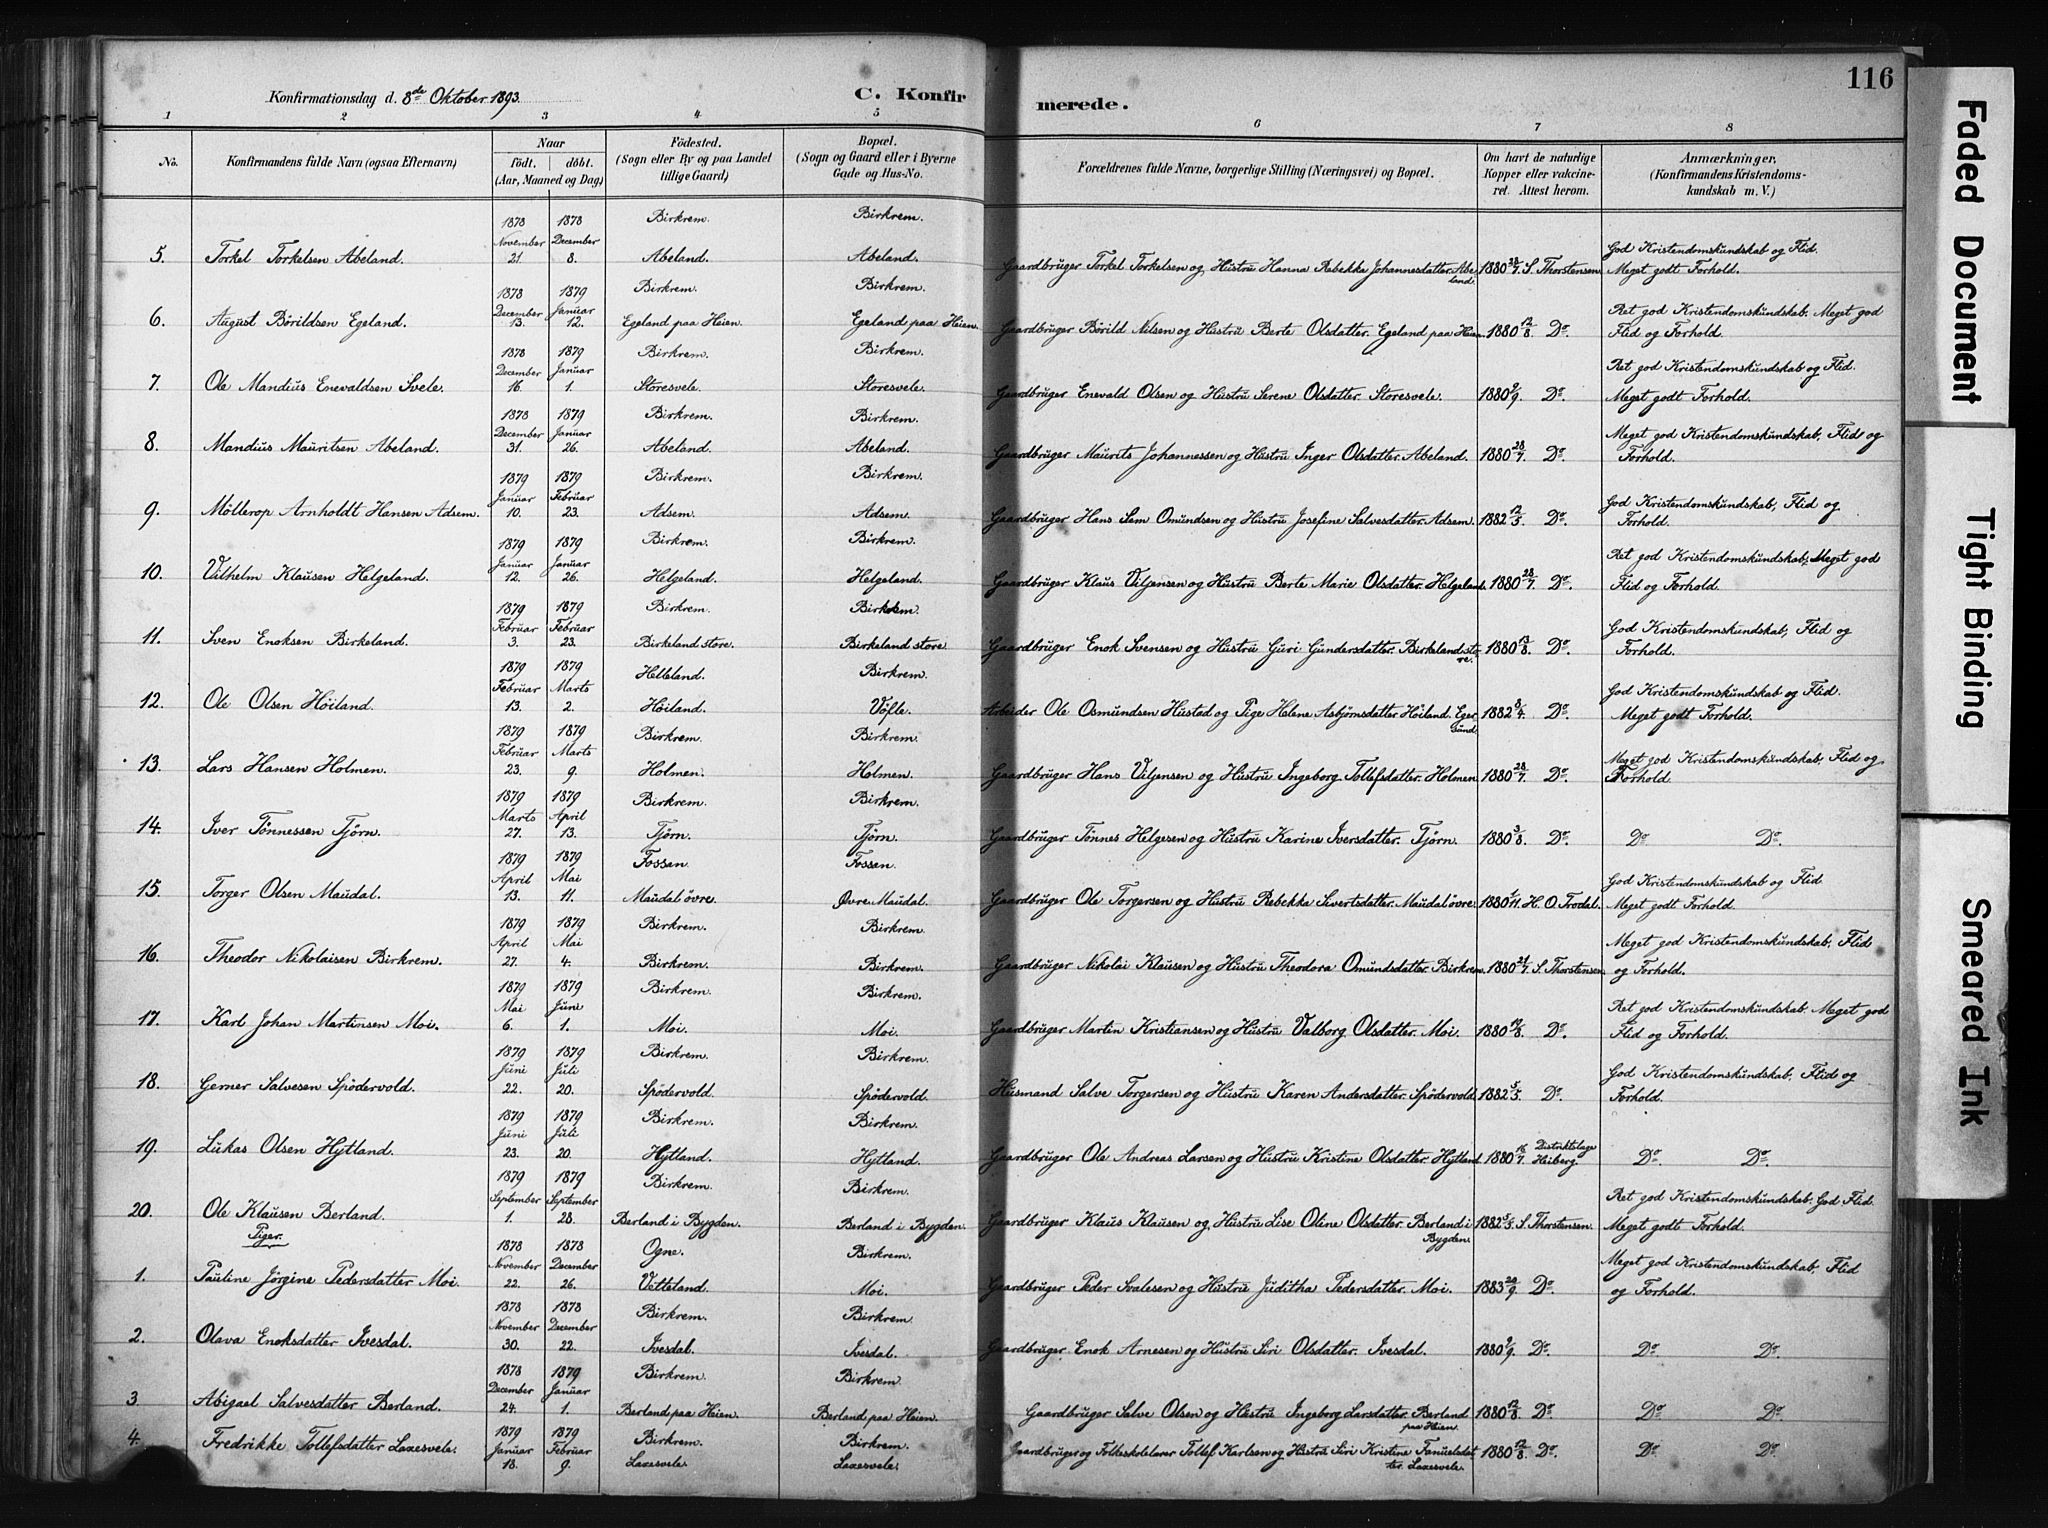 116
Konfirmationsdag d. 8de Oktober 1893.
C. Konfirmerede.
1 2 3 4 5 6 7 8
No.
Konfirmandens fulde Navn (ogsaa Efternavn)
Naar
födt. döbt.
(Aar, Maaned og Dag)
Födested.
(Sogn eller By og paa Landet
tillige Gaard)
Bopæl.
(Sogn og Gaard eller i Byerne
Gade og Hus-No.
Forældrenes fulde Navne, borgerlige Stilling (Næringsvei) og Bopæl.
Om havt de naturlige
Kopper eller vakcine-
ret. Attest herom.
Anmærkninger,
(Konfirmandens Kristendoms-
kundskab m. V.)
1878 1878 Birkrem. Birkrem.
November December God Kristendomskundskab og Flid.
5. Torkel Torkelsen Abeland. 21. 8. Abeland. Abeland. Gaardbruger Torkel Torkelsen og Hustru Hanna Rebekke Johannesdatter. Abe 1880 28/7. S. Thorstensen. Meget godt Forhold.
land.
1878 1879 Birkrem. Birkrem.
December Januar Ret god Kristendomskundskab. Meget god
6. August Börildsen Egeland. 13. 12. Egeland paa Heien. Egeland paa Heien. Gaardbruger Börild Nilsen og Hustru Berte Olsdatter. Egeland paa Heien. 1880 12/8. Do. Flid og Forhold.
1878 1879 Birkrem. Birkrem.
December Januar Ret god Kristendomskundskab og Flid.
7. Ole Mandius Enevaldsen Svele. 16 1. Storesvele. Storesvele. Gaardbruger Enevald Olsen og Hustru Serene Olsdatter. Storesvele. 1880 2/9. Do. Meget godt Forhold.
1878 1879 Birkrem. Birkrem.
December Januar Meget god Kristendomskundskab, Flid og
8. Mandius Mauritsen Abeland. 31. 26. Abeland. Abeland. Gaardbruger Maurits Johannessen og Hustru Inger Olsdatter. Abeland. 1880 28/7. Do. Forhold.
1879 1879 Birkrem. Birkrem.
Januar Februar God Kristendomskundskab, Flid og
9. Möllerop Arnholdt Hansen Adsem. 10. 23. Adsem. Adsem. Gaardbruger Hans Sem Omundsen og Hustru Josefine Salvesdatter. Adsem. 1882 12/5. Do. Forhold.
1879 1879 Birkrem. Birkrem.
Januar Januar Ret god Kristendomskundskab, Meget god
10. Vilhelm Klausen Helgeland. 12. 26. Helgeland. Helgeland. Gaardbruger Klaus Viljensen og Hustru Berte Marie Olsdatter. Helgeland. 1880 28/7. Do. Flid og Forhold.
1879 1879 Birkrem. Birkrem.
Februar Februar God Kristendomskundskab, Flid og
11. Sven Enoksen Birkeland. 3. 23. Birkeland store. Birkeland store Gaardbruger Enok Svensen og Hustru Guri Gundersdatter. Birkeland sto 1880 13/8. Do. Forhold.
re.
1879 1879 Helleland. Birkrem.
Februar Marts God Kristendomskundskab og Flid.
12. Ole Olsen Höiland. 13. 2. Höiland. Vöfle. Arbeider Ole Osmundsen Hustad og Pige Helene Asbjørnsdatter Höiland. Eger 1882 8/4. Do. Meget godt Forhold.
sund.
1879 1879 Birkrem. Birkrem.
Februar Marts Meget god Kristendomskundskab, Flid og
13. Lars Hansen Holmen. 23. 9. Holmen. Holmen. Gaardbruger Hans Viljensen og Hustru Ingeborg Tollefsdatter. Holmen. 1880 28/7. Do. Forhold.
1879 1879 Birkrem. Birkrem.
Marts April
14. Iver Tönnessen Tjörn. 27. 13. Tjörn. Tjörn. Gaardbruger Tönnes Helgesen og Hustru Karine Iversdatter. Tjörn. 1880 3/8. Do. Do Do.
1879 1879 Fossan. Fossan.
April Mai God Kristendomskundskab og Flid
15. Torger Olsen Maudal. 13. 11. Maudal övre. Övre Maudal. Gaardbruger Ole Torgersen og Hustru Rebekka Sivertsdatter. Maudal övre. 1880 1/11. H. O. Frodel. Meget godt Forhold.
1879 1879 Birkrem. Birkrem.
April Mai Meget god Kristendomskundskab, Flid
16. Theodor Nikolaisen Birkrem. 27. 4. Birkrem. Birkrem. Gaardbruger Nikolai Klausen og Hustru Theodora Omundsdatter. Birkrem. 1880 21/7. S. Thorstensen. og Forhold.
1879 1879 Birkrem. Birkrem.
Mai Juni Ret god Kristendomskundskab. Meget god
17. Karl Johan Martinsen Moi. 6. 1. Moi. Moi. Gaardbruger Martin Kristiansen og Hustru Valborg Olsdatter. Moi. 1880 12/8. Do. Flid og Forhold.
1879 1879 Birkrem. Birkrem.
Juni Juli God Kristendomskundskab, Flid og
18. Gerner Salvesen Spödervold. 22. 20. Spödervold. Spödervold. Husmand Salve Torgersen og Hustru Karen Andersdatter. Spödervold. 1882 5/5. Do. Forhold.
1879 1879 Birkrem. Birkrem.
Juni Juli Distriktslæge
19. Lukas Olsen Hytland. 23. 20. Hytland. Hytland. Gaardbruger Ole Andreas Larsen og Hustru Kristine Olsdatter. Hytland 1880 16/7. Heiberg. Do. Do.
1879 1879 Birkrem. Birkrem.
September September Ret god Kristendomskundskab. God Flid.
20. Ole Klausen Berland. 1. 28. Berland i Bygden. Berland i Bygden. Gaardbruger Klaus Klausen og Hustru Lise Oline Olsdatter. Berland i 1882 5/5. S. Thorstensen. Meget godt Forhold.
Bygden.
Piger.
1878 1878 Ogne. Birkrem.
November December Meget god Kristendomskundskab, Flid
1. Pauline Jörgine Pedersdatter Moi. 22. 26. Vitteland. Moi. Gaardbruger Peder Svalesen og Hustru Juditha Pedersdatter. Moi. 1883 20/9. Do. og Forhold.
1878 1878 Birkrem. Birkrem.
November December
2. Olava Enoksdatter Ivesdal. 30. 22. Ivesdal. Ivesdal. Gaardbruger Enok Arnesen og Hustru Siri Olsdatter. Ivesdal. 1880 2/9. Do. Do Do.
1878 1879 Birkrem. Birkrem.
December Januar
3. Abigael Salvesdatter Berland. 24. 1. Berland paa Heien. Berland paa Heien. Gaardbruger Salve Olsen og Hustru Ingeborg Larsdatter. Berland 1880 12/8. Do. Do Do.
paa Heien.
1879 1879 Birkrem. Birkrem.
4. Fredrikke Tollefsdatter Laxesvele. Januar Februar Gaardbruger og Folkeskolelærer Tollef Karlsen og Hustru Siri Kristine Tanuelsdat 1880 12/8. Do. Do Do.
18. 9. Laxesvele. Laxesvele. ter. Laxesvele.
Faded Document
Tight Binding
Smeared Ink